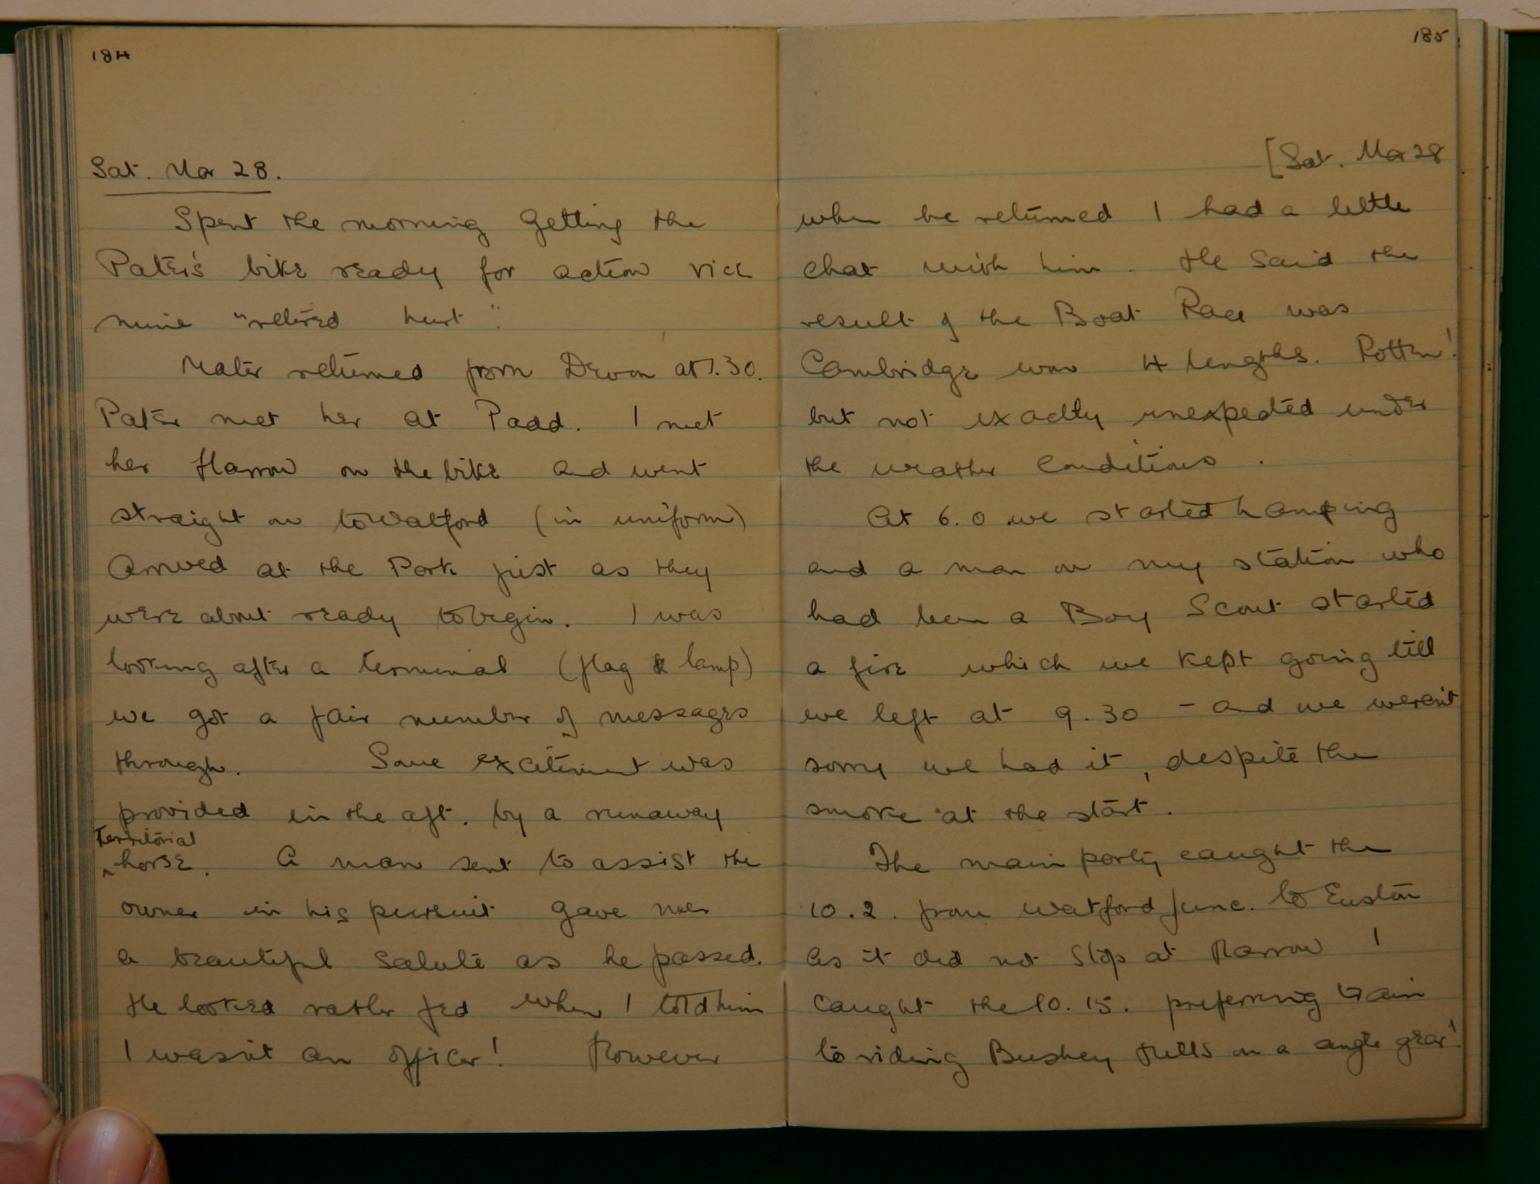 184
Sat. Mar 28.
Spent the morning getting the
Pater's bike ready for action vice
mine "retired hurt".
Mater returned from Devon at 1.30.
Pater met her at Padd. I met
her Harrow on the bike and went
straight on to Watford (in uniform)
Arrived at the Park just as they
were about ready to begin. I was
looking after a terminal (flag & lamp)
we got a fair number of messages
through. Some excitement was
provided in the aft. by a runaway
Territorial
^horse. A man sent to assist the
owner in his pursuit gave me
a beautiful salute as he passed.
He looked rather fed when I told him
I wasn't an officer! However
185
[Sat. Mar 28
when he returned I had a little
chat with him. He said the
result of the Boat Race was
Cambridge won 4 lengths. Rotten!
but not exactly unexpected under
the weather conditions.
At 6.0 we started lamping
and a man on my station who
had been a Boy Scout started
a fire which we kept going till
we left at 9.30 - and we weren't
sorry we had it, despite the
smoke at the start.
The main party caught the
10.2. from Watford Junc. to Euston
As it did not stop at Harrow I
caught the 10.15. preferring train
to riding Bushey Hills on a single gear!